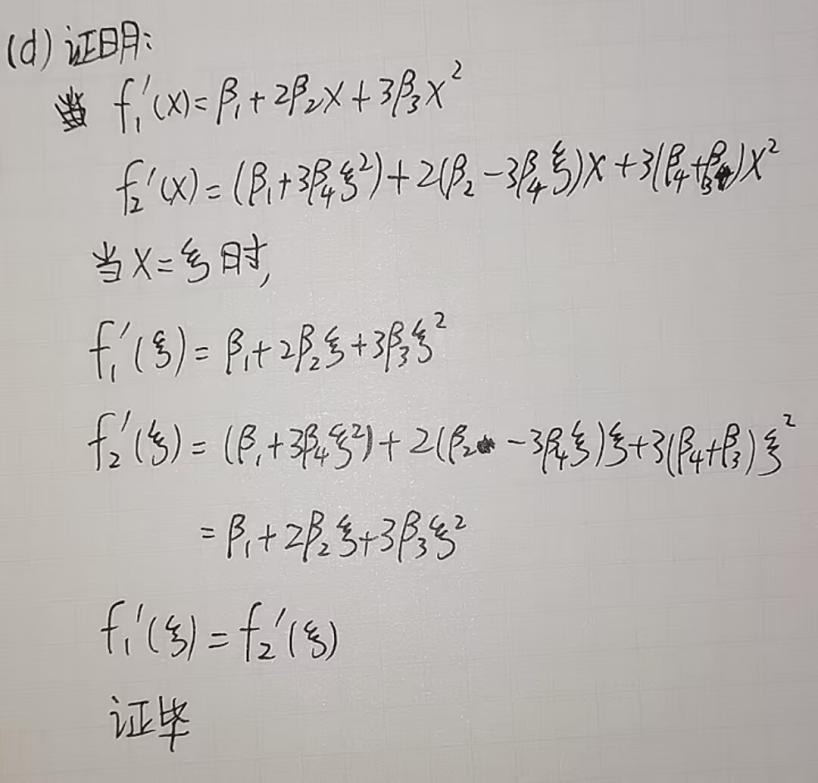 (d) 证明:
当 f₁'(x)=β₁+2β₂x+3β₃x²
f₂'(x)=(β₁+3β₄ξ²)+2(β₂-3β₄ξ)x+3(β₄+β₃)x²
当x=ξ时,
f₁'(ξ)=β₁+2β₂ξ+3β₃ξ²
f₂'(ξ)=(β₁+3β₄ξ²)+2(β₂-3β₄ξ)ξ+3(β₄+β₃)ξ²
=β₁+2β₂ξ+3β₃ξ²
f₁'(ξ)=f₂'(ξ)
证毕